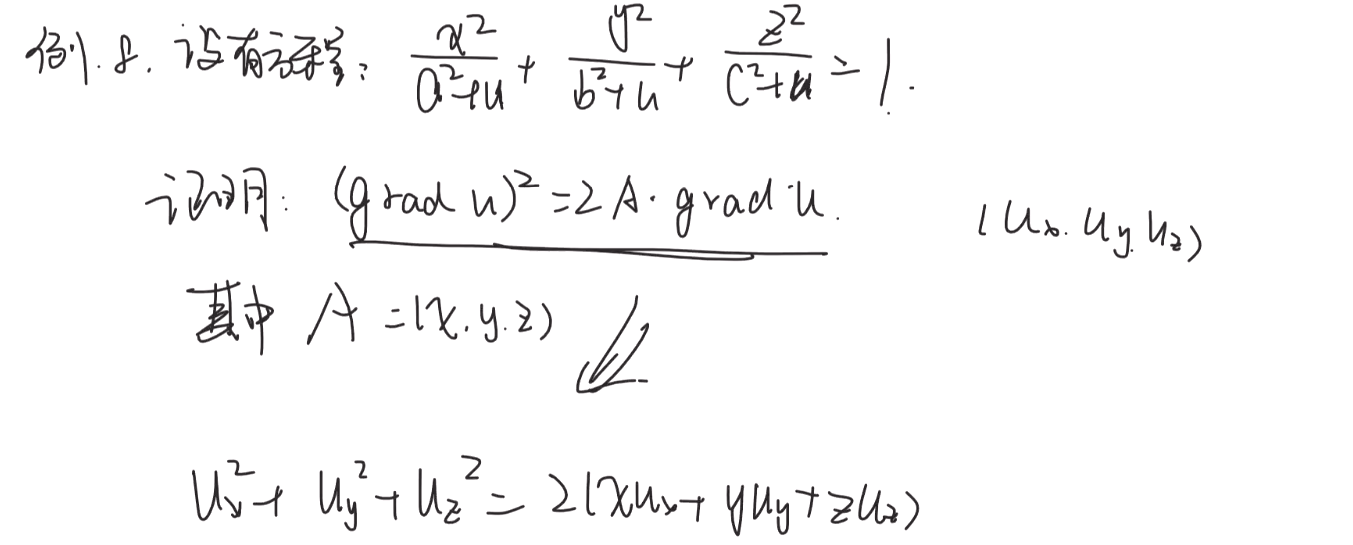 例.8. 设有方程: x²/(a²+u) + y²/(b²+u) + z²/(c²+u) = 1.
证明: (grad u)² = 2A·grad u. (ux. uy. uz)
其中 A = (x. y. z)
ux² + uy² + uz² = 2(xux + yuy + zuz)